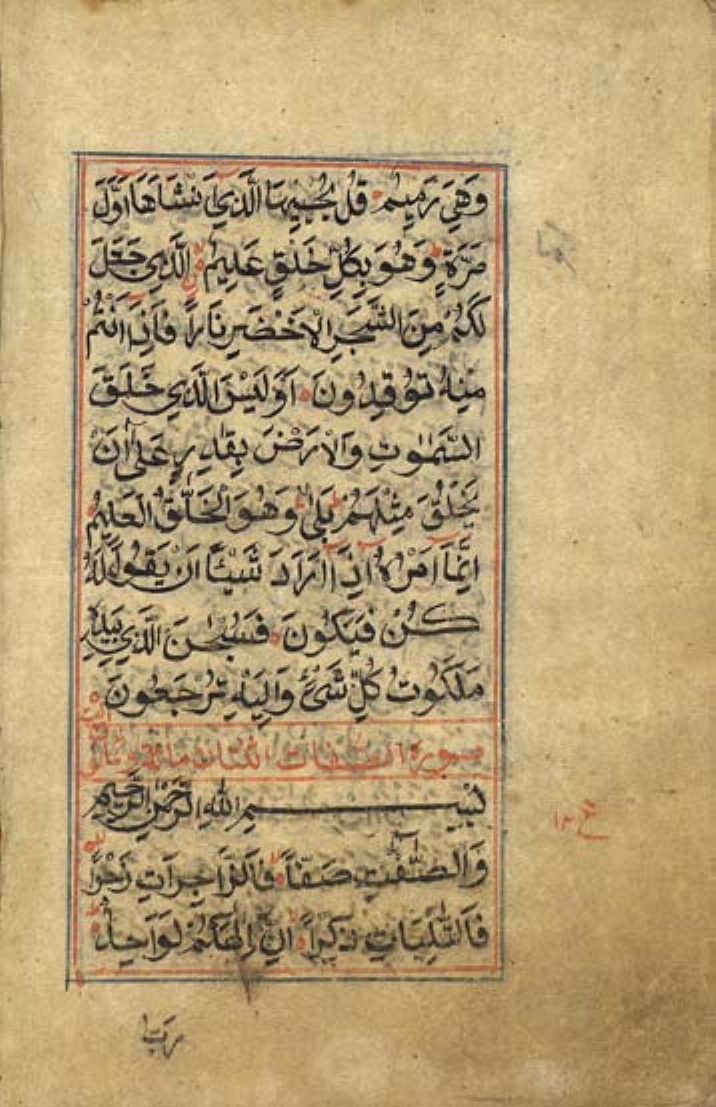 وَهِيَ رَمِيمٌ قُلْ يُحْيِيهَا الَّذِي أَنْشَاهَا أَوَّلَ
مَرَّةٍ وَهُوَ بِكُلِّ خَلْقٍ عَلِيمٌ الَّذِي جَعَلَ
لَكُمْ مِنَ الشَّجَرِ الْأَخْضَرِ نَاراً فَاِذَا اَنْتُمْ
مِنْهُ تُوقِدُونَ اَوَلَيْسَ الَّذِي خَلَقَ
السَّمٰوٰتِ وَالْاَرْضَ بِقٰدِرٍ عَلٰٓى اَنْ
يَخْلُقَ مِثْلَهُمْ بَلٰى وَهُوَ الْخَلّٰقُ الْعَلِيمُ
اِنَّمَآ اَمْرُهُ اِذَآ اَرَادَ شَيْئًا اَنْ يَقُولَ لَهُ
كُنْ فَيَكُونَ فَسُبْحٰنَ الَّذِي بِيَدِهِ
مَلَكُوتُ كُلِّ شَيْءٍ وَاِلَيْهِ تُرْجَعُونَ
سورة الصافات مائة و اية
بِسْمِ اللهِ الرَّحْمٰنِ الرَّحِيمِ
وَالصّٰٓفّٰتِ صَفّاً فَالزَّاجِرَاتِ زَجْراً
فَالتّٰلِيَاتِ ذِكْراً اِنَّ اِلٰهَكُمْ لَوَاحِدٌ
رب